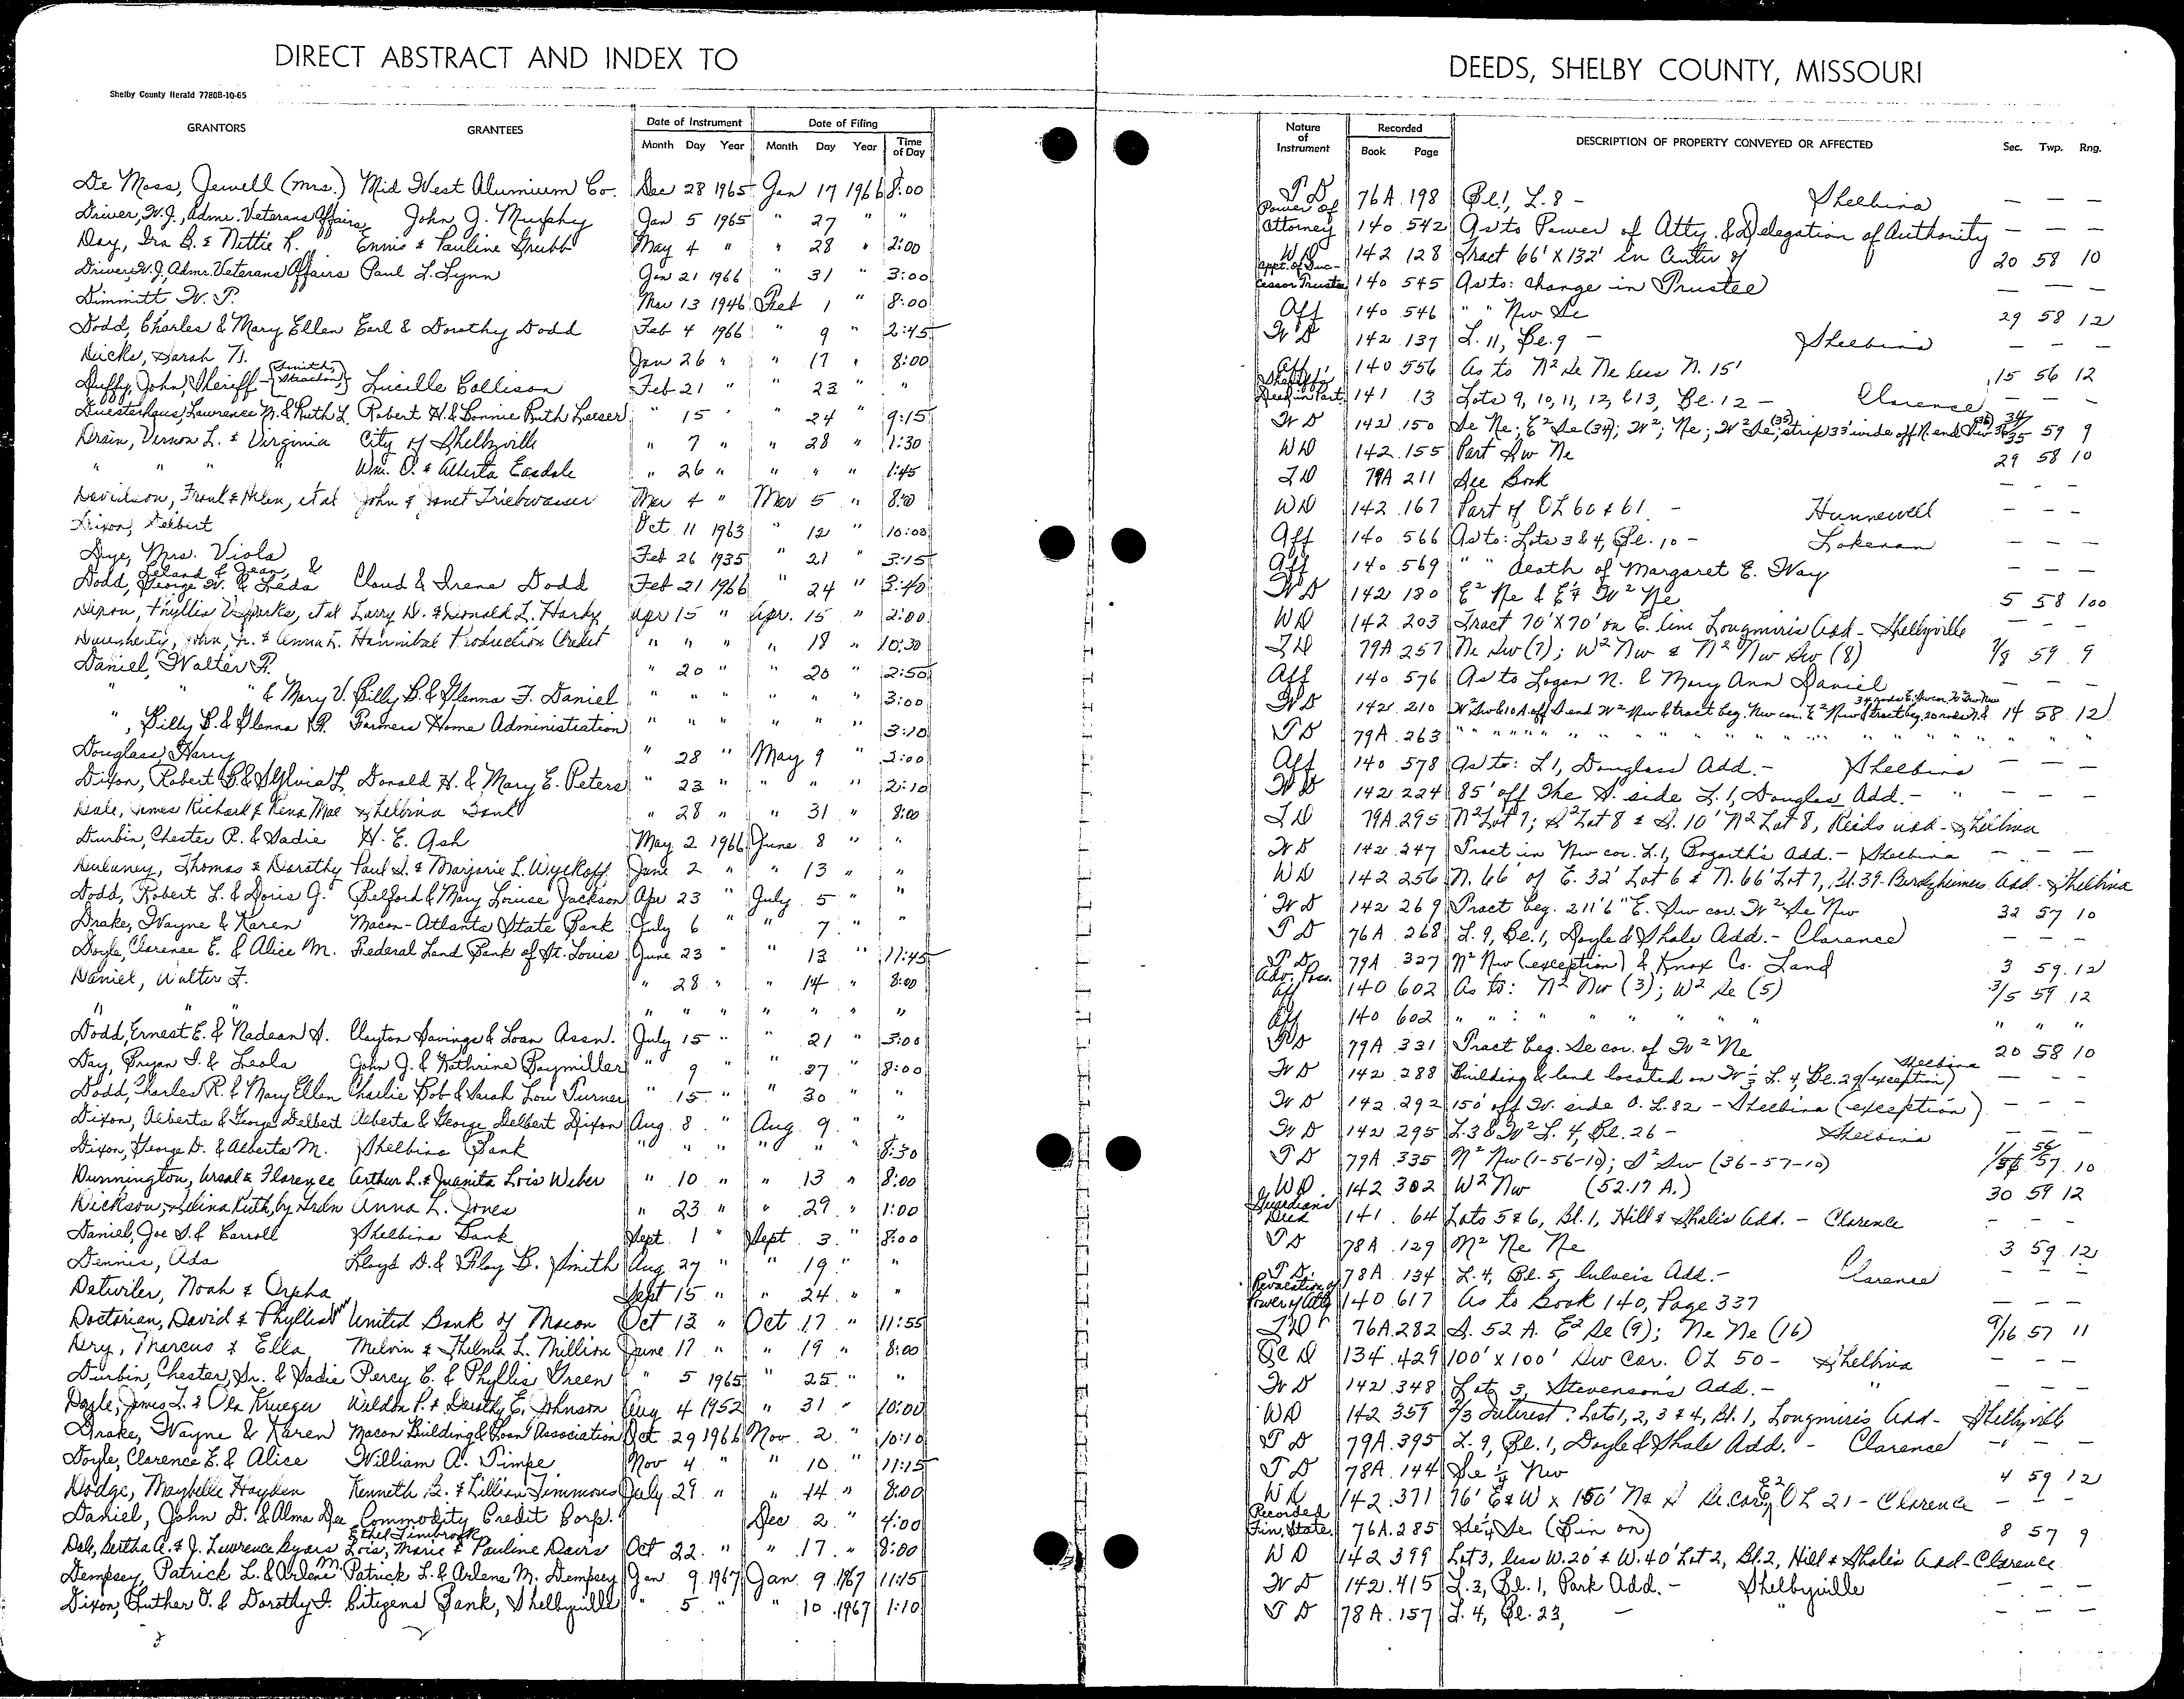 DIRECT ABSTRACT AND INDEX TO
DEEDS, SHELBY COUNTY, MISSOURI
Shelby County Herald 7780B-10-65
GRANTORS GRANTEES Date of Instrument Month Day Year Date of Filing Month Day Year Time of Day
Nature of Instrument Recorded Book Page DESCRIPTION OF PROPERTY CONVEYED OR AFFECTED Sec. Twp. Rng.
De Moss, Jewell (Mrs.) Mid West Alumium Co. Dec 28 1965 Jan 17 1966 8:00 T D 76A 198 Bl 1, L. 8 - Shelbina — — —
Driver, W.J., Admr. Veterans Affairs John J. Murphy Jan 5 1965 " 27 " " Power of Attorney 140 542 As to Power of Atty. & Delegation of Authority — — —
Day, Ira B. & Nettie R. Ennis & Pauline Grubb May 4 " " 28 " 2:00 WD 142 128 Tract 66' X 132' in Center of 20 58 10
Driver, W.J, Admr. Veterans Affairs Paul L. Lynn Jan 21 1966 " 31 " 3:00 Appt. of Successor Trustee 140 545 As to: change in Trustee — — —
Dimmitt W. P. Mar 13 1946 Feb 1 " 8:00 Aff 140 546 " " Nw Se 29 58 12
Dodd, Charles & Mary Ellen Earl & Dorothy Dodd Feb 4 1966 " 9 " 2:45 W D 142 137 L. 11, Bl. 9 - Shelbina — — —
Dicks, Sarah M. Jan 26 " " 17 " 8:00 Aff 140 556 As to N² Se Ne less N. 15' 15 56 12
Duffy, John, Sheriff - (Smith, Strachan) Lucille Collison Feb 21 " " 23 " " Sheriff's Deed in Part. 141 13 Lots 9, 10, 11, 12, & 13, Bl. 12 - Clarence — — —
Duesterhaus, Lawrence N. & Ruth L. Robert H. & Bonnie Ruth Loeser " 15 " " 24 " 9:15 W D 142 150 Se Ne; E² Se (34); W²; Ne; W² Se (35); strip 33' wide off N. end Nw (36) 34 35 36 59 9
Drain, Vernon L. & Virginia City of Shelbyville " 7 " " 28 " 1:30 WD 142 155 Part Sw Ne 29 58 10
" " " " Wm. O. & Alberta Easdale " 26 " " " " 1:45 T D 79A 211 See Book — — —
Davidson, Frank & Helen, et al John & Janet Triebwasser Mar 4 " Mar 5 " 8:00 WD 142 167 Part of OL 60 & 61 - Hunnewell — — —
Dixon, Delbert Oct 11 1963 " 12 " 10:00 Aff 140 566 As to: Lots 3 & 4, Bl. 10 - Lakenan — — —
Dye, Mrs. Viola Feb 26 1935 " 21 " 3:15 Aff 140 569 " " death of Margaret E. Way — — —
Dodd, Leland & Jean, & George W. & Leda Claud & Irene Dodd Feb 21 1966 " 24 " 3:40 W D 142 180 E² Ne & E½ W² Ne 5 58 100
Dixon, Phyllis Sparks, et al Larry D. & Donald L. Hardy Apr 15 " Apr. 15 " 2:00 WD 142 203 Tract 70' X 70' on E. line Longmire's Add - Shelbyville — — —
Daugherty, John, Jr. & Anna L. Hannibal Production Credit " " " " 18 " 10:30 T D 79A 257 Ne Sw (7); W² Nw & N² Nw Sw (8) 7/8 59 9
Daniel, Walter F. " 20 " " 20 " 2:50 Aff 140 576 As to Logan N. & Mary Ann Daniel — — —
" " & Mary V. Billy B. & Glenna F. Daniel " " " " " " 3:00 W D 142 210 W² Sw & 10 A. off S. end W² Nw & tract beg. Nw cor. E² Nw 14 58 12
" , Billy B. & Glenna F. Farmers Home Administration " " " " " " 3:10 T D 79A 263 " " " " " " " "
Douglass, Harry " 28 " May 9 " 2:00 Aff 140 578 As to: L 1, Douglass Add. - Shelbina — — —
Dixon, Robert B. & Sylvia L. Donald H. & Mary E. Peters " 23 " " " " 2:10 W D 142 224 85' off the S. side L. 1, Douglas Add. - " — — —
Dale, James Richard & Rena Mae Shelbina Bank " 28 " " 31 " 8:00 T D 79A 295 N² Lot 7; S² Lot 8 & S. 10' N² Lot 8, Reids Add - Shelbina
Durbin, Chester R. & Sadie H. E. Ash May 2 1966 June 8 " " W D 142 247 Tract in Nw cor. L. 1, Bogarth's Add. - Shelbina — — —
Dulaney, Thomas & Dorothy Paul S. & Marjorie L. Wyckoff June 2 " " 13 " " WD 142 256 N. 66' of E. 32' Lot 6 & N. 66' Lot 7, Bl. 39 - Berdyheimer Add - Shelbina
Dodd, Robert L. & Doris J. Belford & Mary Louise Jackson Apr 23 " July 5 " " W D 142 269 Tract beg. 211'6" E. Sw cor. W² Se Nw 32 57 10
Drake, Wayne & Karen Macon-Atlanta State Bank July 6 " " 7 " " T D 76A 268 L. 9, Bl. 1, Doyle & Shale Add. - Clarence — — —
Doyle, Clarence E. & Alice M. Federal Land Bank of St. Louis June 23 " " 13 " 11:45 T D 79A 327 N² Nw (exception) & Knox Co. Land 3 59 12
Daniel, Walter F. " 28 " " 14 " 8:00 Adv. Poss. Aff 140 602 As to: N² Nw (3); W² Se (5) 3/5 59 12
" " " " " " " " " " Aff 140 602 " " : " " " " " " " "
Dodd, Ernest E. & Nadean S. Clayton Savings & Loan Assn. July 15 " " 21 " 3:00 T D 79A 331 Tract beg. Se cor. of W² Ne 20 58 10
Day, Bryan I. & Leola John J. & Kathrine Baymiller " 9 " " 27 " 8:00 W D 142 288 Building & land located on W½ L. 4, Bl. 29 (exception) Shelbina — — —
Dodd, Charles R. & Mary Ellen Charlie Bob & Sarah Lou Turner " 15 " " 30 " " W D 142 292 150' off W. side O. L. 82 - Shelbina (exception) — — —
Dixon, Alberta & George Delbert Alberta & George Delbert Dixon Aug. 8 " Aug. 9 " " W D 142 295 L. 3 & W² L. 4, Bl. 26 - Shelbina — — —
Dixon, George D. & Alberta M. Shelbina Bank " " " " " " 8:30 T D 79A 335 N² Nw (1-56-10); S² Sw (36-57-10) 1/36 56/57 10
Dunnington, Ursal & Florence Arthur L. & Juanita Lois Weber " 10 " " 13 " 8:00 WD 142 302 W² Nw (52.17 A.) 30 59 12
Dickson, Selina Ruth, by Grdn Anna L. Jones " 23 " " 29 " 1:00 Guardian's Deed 141 64 Lots 5 & 6, Bl. 1, Hill & Shale's Add. - Clarence — — —
Daniel, Joe S. & Carroll Shelbina Bank Sept. 1 " Sept. 3 " 8:00 T D 78A 129 N² Ne Ne 3 59 12
Dennis, Ada Lloyd D. & Floy B. Smith Aug 27 " " 19 " " T D 78A 134 L. 4, Bl. 5, Culveis Add. - Clarence — —
Detwiler, Noah & Orpha Sept 15 " " 24 " " Revocation of Power of Atty 140 617 As to Book 140, Page 337 — — —
Doctorian, David & Phyllis United Bank of Macon Oct 12 " Oct 17 " 11:55 T D 76A 282 S. 52 A. E² Se (9); Ne Ne (16) 9/16 57 11
Dry, Marcus & Ella Melvin & Thelma L. Million June 17 " " 19 " 8:00 QC D 134 429 100' x 100' Sw Cor. OL 50 - Shelbina — — —
Durbin, Chester, Sr. & Sadie Percy E. & Phyllis Green " 5 1965 " 25 " " W D 142 348 Lot 3, Stevenson's Add. - " — —
Doyle, James L. & Ola Krueger Weldon P. & Dorothy E. Johnson Aug 4 1952 " 31 " 10:00 WD 142 359 2/3 Interest: Lots 1, 2, 3 & 4, Bl. 1, Longmire's Add - Shelbyville
Drake, Wayne & Karen Macon Building & Loan Association Oct 29 1966 Nov. 2 " 10:10 T D 79A 395 L. 9, Bl. 1, Doyle & Shale Add. - Clarence — — —
Doyle, Clarence E. & Alice William A. Timpe Nov 4 " " 10 " 11:15 T D 78A 144 Se ¼ Nw 4 59 12
Dodge, Maybelle Hayden Kenneth B. & Lillian Timmons July 29 " " 14 " 8:00 WD 142 371 76' E & W x 150' N & S Se cor. E² OL 21 - Clarence — — —
Daniel, John D. & Alma Dee Commodity Credit Corp. Dec 2 " 4:00 Recorded Fin. State. 76A 285 Se ¼ Se (Bin on) 8 57 9
Dale, Bertha A. & J. Lawrence Byars Ethel Timbrook, Lois, Marie & Pauline Davis Oct 22 " " 17 " 8:00 WD 142 399 Lot 3, less W. 20' & W. 40' Lot 2, Bl. 2, Hill & Shale's Add - Clarence
Dempsey, Patrick L. & Arlene M. Patrick L. & Arlene M. Dempsey Jan 9 1967 Jan. 9 1967 11:15 W D 142 415 L. 2, Bl. 1, Park Add. - Shelbyville — — —
Dixon, Luther O. & Dorothy I. Citizens Bank, Shelbyville " 5 " " 10 1967 1:10 T D 78A 157 L. 4, Bl. 23, — " — — —